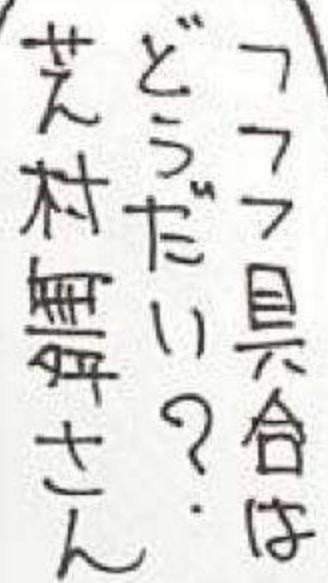 フフフ具合は
どうだい?
芝村舞さん